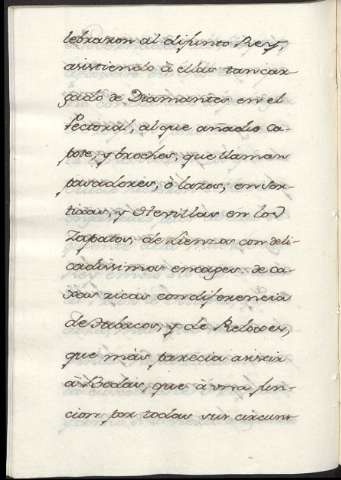 lebraron al difunto Rey,
asistiendo â ellas tan car
gado de Diamantes en el
Pectoral, al que añadio ca
pote, y broches, que llaman
pasadores, ô lazos, en sor
tijas, y Hevillas en los
Zapatos, de lienzos con deli
cadissimos encages, de ca
xas ricas con diferencia
de tabacos, y de Reloxes,
que más parecia asistir
â Bodas, que â una fun
cion por todas sus circuns